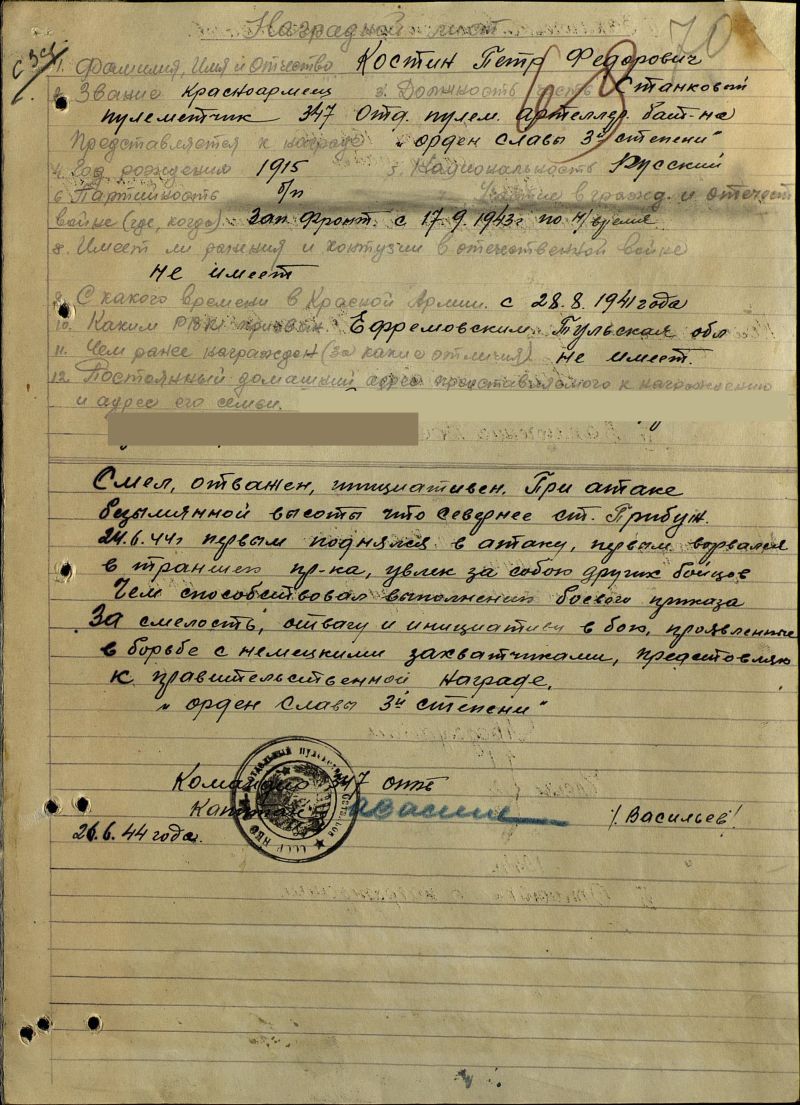 Наградной лист
70
1. Фамилия, Имя и Отчество Костин Петр Федорович
2. Звание Красноармеец 3. Должность, часть Станковый
пулеметчик 347 Отд. пулем. артеллер. бат-на
Представляется к награде "орден Славы 3й степени"
4. Год рождения 1915 5. Национальность Русский
6. Партийность б/п 7. Участие в гражд. и отечест
войне (где, когда) Зап. Фронт. с 17.9.1943г по н/время
8. Имеет ли ранения и контузии в отечественной войне
не имеет
9. С какого времени в Красной Армии. с 28.8.1941 года
10. Каким РВК призван Ефремовским Тульская обл
11. Чем ранее награжден (за какие отличия) не имеет.
12. Постоянный домашний адрес представляемого к награждению
и адрес его семьи.
Смел, отважен, инициативен. При атаке
безымянной высоты что севернее ст. Прибуж.
24.6.44г первым поднялся в атаку, первым ворвался
в траншею пр-ка, увлек за собою других бойцов
Чем способствовал выполнению боевого приказа
За смелость, отвагу и инициативу в бою, проявленные
в борьбе с немецкими захватчиками, представляю
к правительственной награде,
"орден Славы 3й степени"
Командир 347 опаб
Капитан /Васильев/
26.6.44 года.